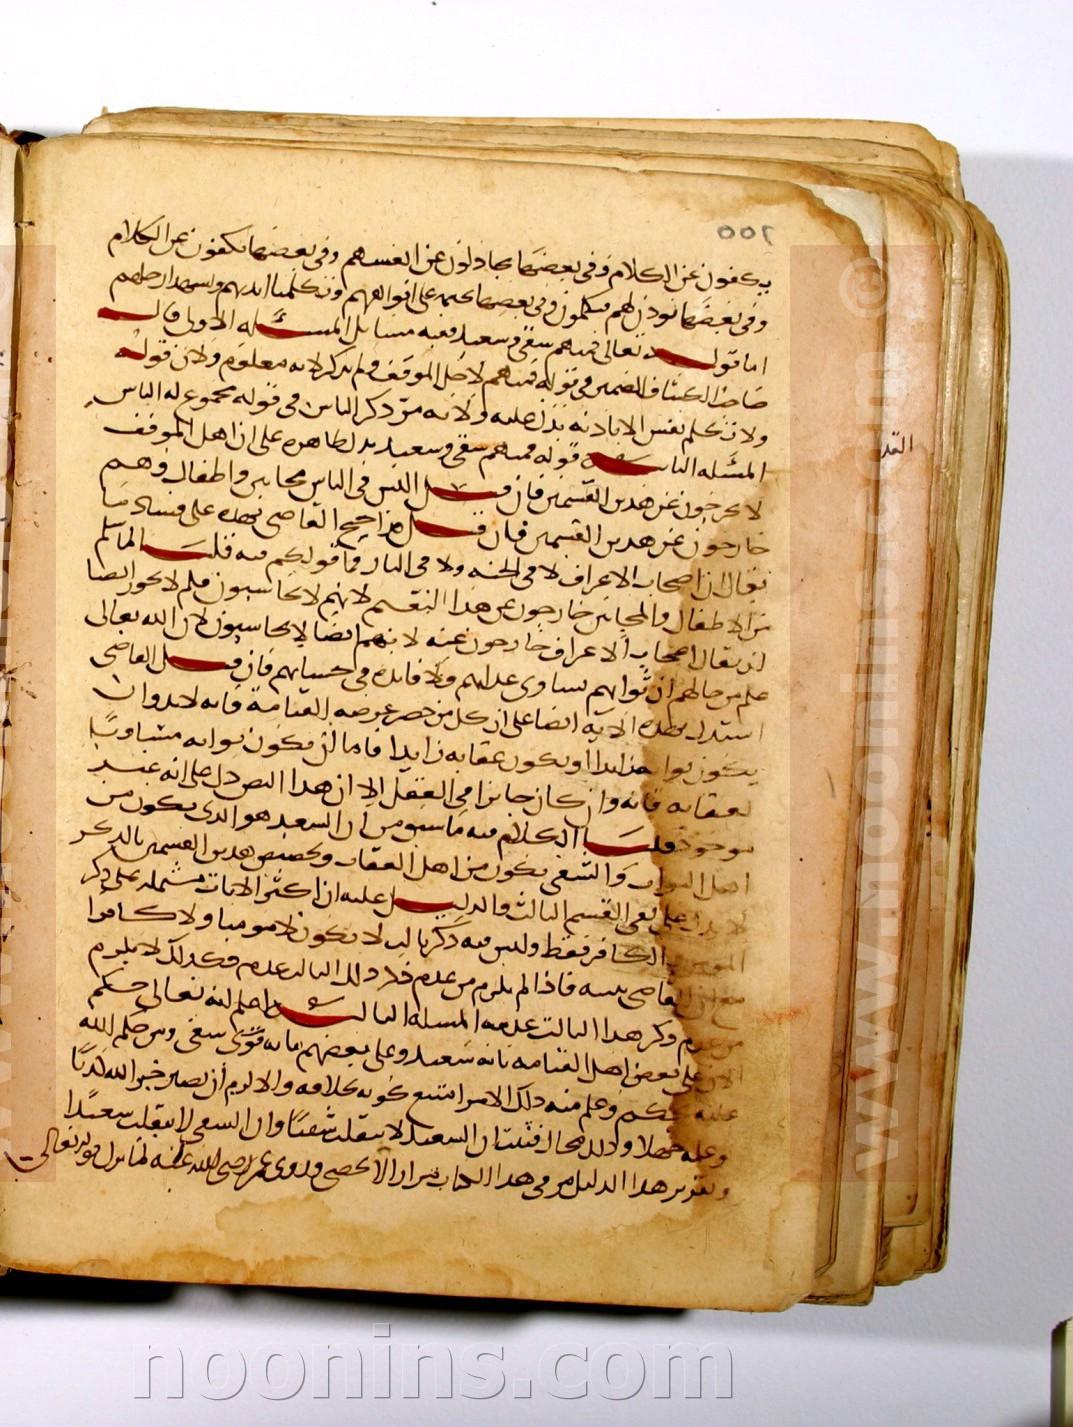 يكفون عن الكلام وفى بعضها يجادلون عن انفسهم وفى بعضها يكفون عن الكلام
وفى بعضها يوذن لهم فيتكلمون وفى بعضها يختم على افواههم وتكلمنا ايديهم وتشهد ارجلهم
اما قوله تعالى فمنهم شقى وسعيد ففيه مسايل المسئله الاولى قال
صاحب الكشاف الضمير فى قوله فمنهم لاهل الموقف ولم يذكر لانه معلوم ولان قوله
ولا تكلم نفس الا باذنه يدل عليه ولانه مر ذكر الناس فى قوله مجموع له الناس
المسئله الثانيه قوله فمنهم شقى وسعيد يدل ظاهره على ان اهل الموقف
لا يخرجون عن هذين القسمين فان قيل اليس فى الناس مجانين واطفال وهم
خارجون عن هذين القسمين فان قيل هذا احتج القاضى بهذه على فساد ما
يقال ان اصحاب الاعراف لا فى الجنه ولا فى النار فما قولكم فيه قلنا لما سلم
ان الاطفال والمجانين خارجون عن هذا التقسيم لانهم لا يحاسبون فلم لا يجوز ايضا
ان يقال اصحاب الاعراف خارجون عنه لانهم ايضا لا يحاسبون لان الله تعالى
علم من حالهم ان ثوابهم يساوى عذابهم ولا فايده فى حسابهم فان قيل القاضى
استدل بهذه الايه ايضا على ان كل من حضر عرصه القيامة فانه لابد وان
يكون ثوابه زايدا او يكون عقابه زايدا فاما ان يكون ثوابه متساويا
لعقابه فانه وان كان جايزا فى العقل الا ان هذا النص دل على انه غير
موجود قلنا الكلام فيه ما سبق من ان السعيد هو الذى يكون من
اهل الثواب والشقى يكون من اهل العقاب وتخصيص هذين القسمين بالذكر
لا يدل على نفى القسم الثالث والدليل عليه ان اكثر الايات مشتمله على ذكر
المومن والكافر فقط وليس فيه ذكر ثالث لا يكون لا مومنا ولا كافرا
مع ان القاضى يثبته فاذا لم يلزم من عدم ذكر ذلك الثالث عدمه فكذلك لا يلزم
من عدم ذكر هذا الثالث عدمه المسئله الثالثه اعلم انه تعالى حكم
الان على بعض اهل القيامه بانه سعيد وعلى بعضهم بانه شقى ومن حكم الله
عليه بحكم وعلم منه ذلك الامر امتنع كونه بخلافه والا لزم ان يصير خبر الله كذبا
وعلمه جهلا وذلك محال فثبت ان السعيد لا ينقلب شقيا وان الشقى لا ينقلب سعيدا
وتقرير هذا الدليل مر فى هذا الكتاب مرارا لا تحصى وروى عمر رضى الله عنه لما نزل قوله تعالى
noonins.com
www.noonins.com ©